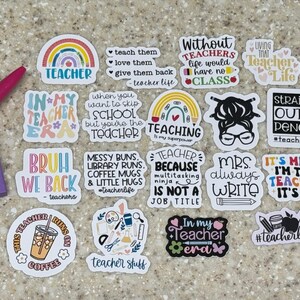 TEACHER
teach them
love them
give them back
teacher life
Without
TEACHERS
life would
have no
CLASS
LIVING THAT
Teacher
Life
IN MY
TEACHER
ERA
when you
want to skip
SCHOOL
but you're the
TEACHER
TEACHING
is my superpower
BRUH
WE BACK
- teachers
MESSY BUNS,
LIBRARY RUNS,
COFFEE MUGS
& LITTLE HUGS
#teacherlife
TEACHER
BECAUSE
multitasking
ninja
IS NOT A
JOB TITLE
MRS.
always
WRITE
IT'S M
I'M TH
TEAC
IT'S
THIS TEACHER RUNS ON
COFFEE
teacher stuff
In my
Teacher
era
#teacherli